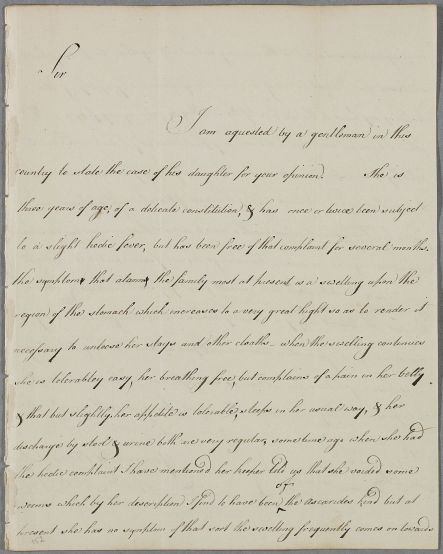 Sir
I am aquested by a gentleman in this
country to state the case of his daughter for your opinion. She is
three years of age, of a delicate constitution, & has once or twice been subject
to a slight hectic fever, but has been free of that complaint for several months.
the symptom that alarms the family most at present is a swelling upon the
region of the stomach which increases to a very great hight so as to render it
necessary to unloose her stays and other cloaths - when the swelling continues
she is tolerabley easy, her breathing free, but complains of a pain in her belly
& that but slightly, her appetite is tolerable, sleeps in her usual way, & her
discharge by stool & urine both are very regular, some time ago when she had
the hectic complaint I have mention'd her keeper tells us that she voided some
of
worms which by her description I find to have been the ascarides kind but at
present she has no symptom of that sort the swelling frequently comes on towards